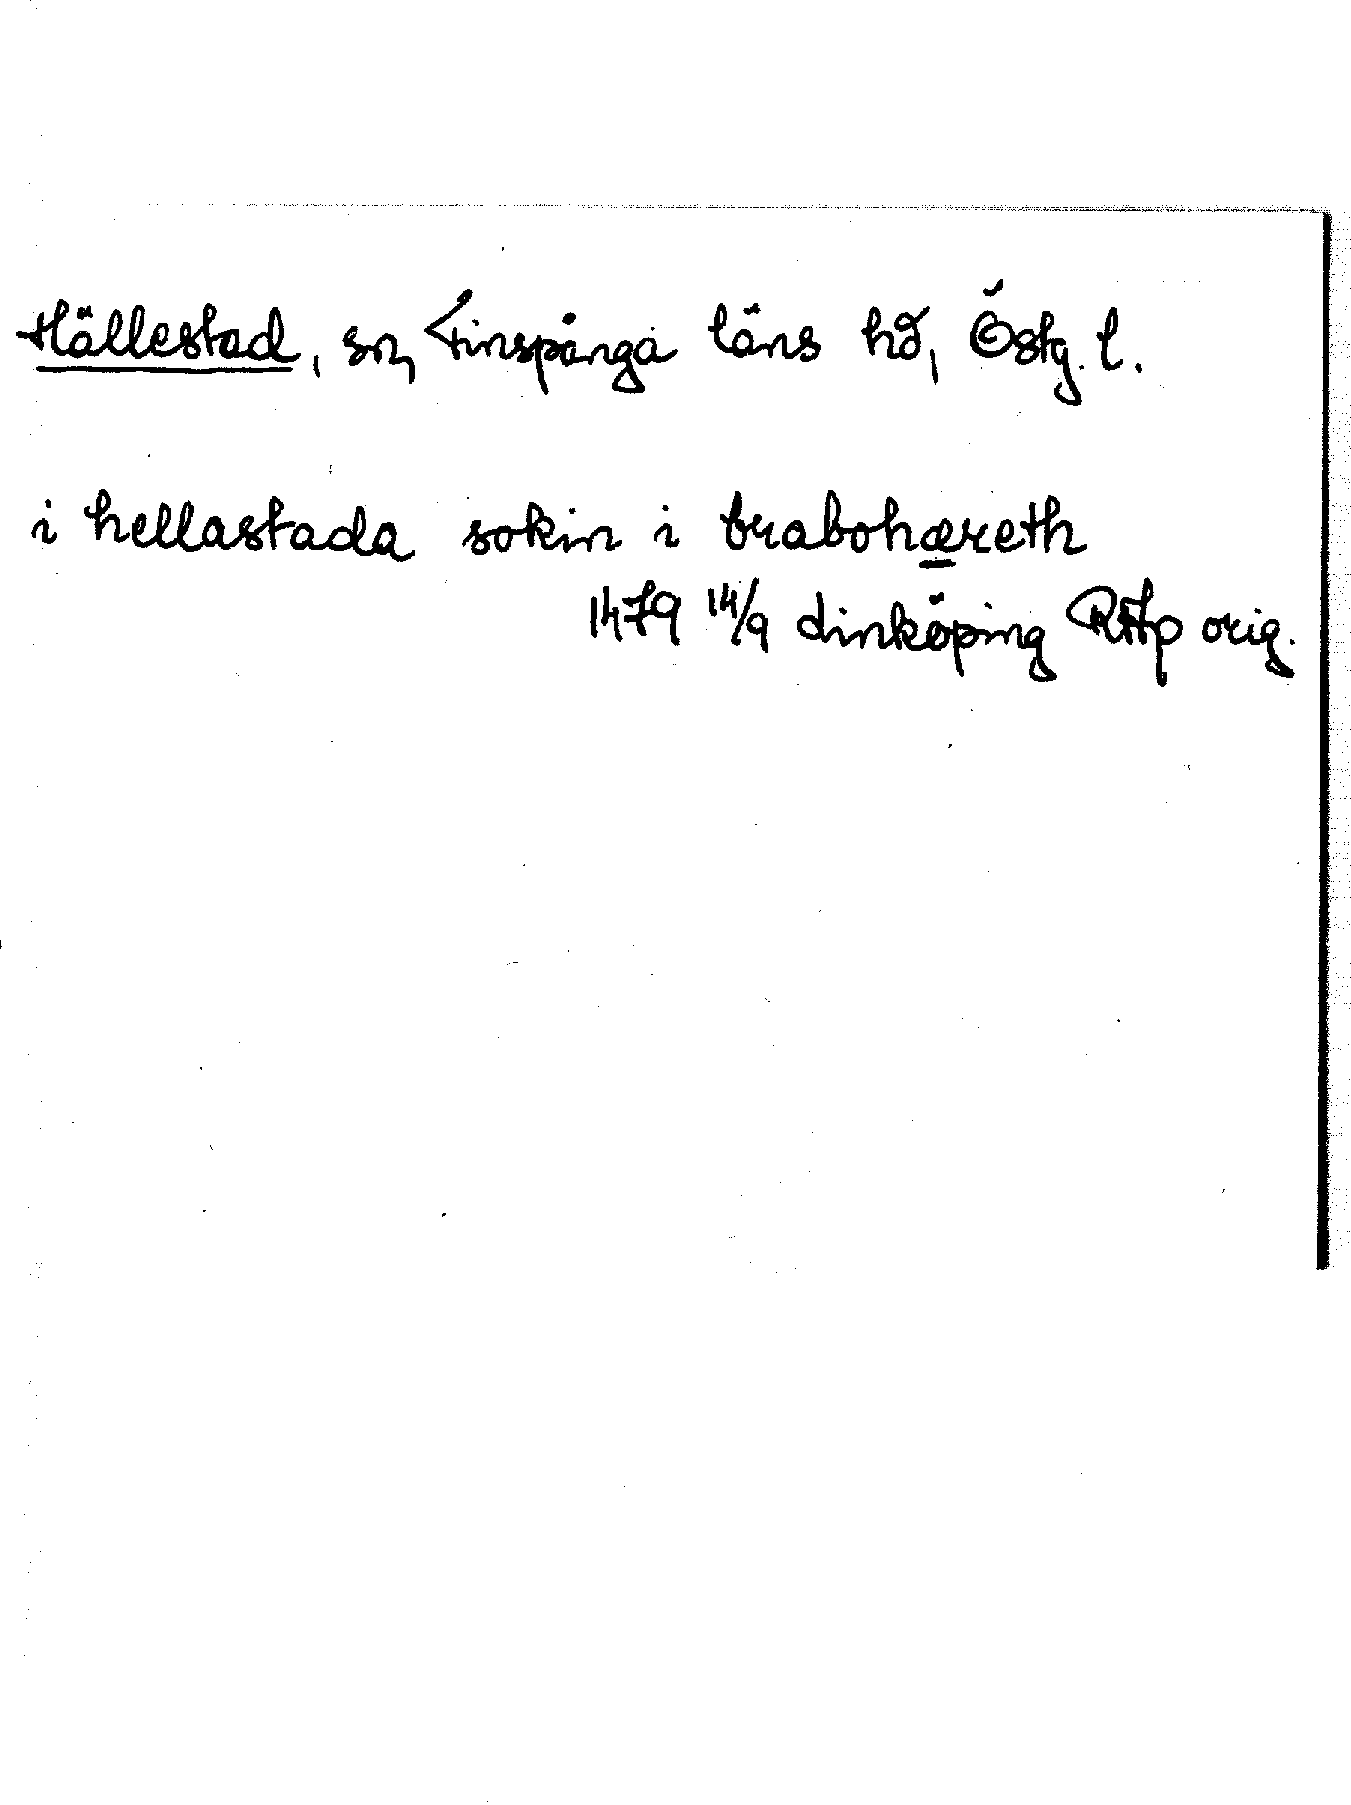 Hällestad, sn, Finspånga läns hd, Östg. l.
i hellastada sokin i brabohæreth
1479 14/9 Linköping RAp orig.